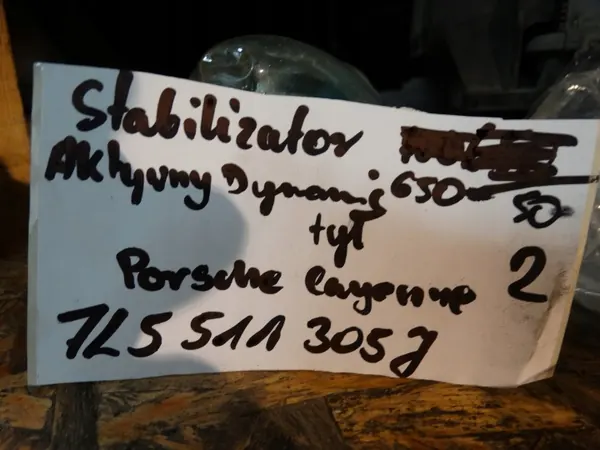 Stabilizator
Aktywny Dynamic 650 50
tył
Porsche Cayenne 2
7L5 511 305 J